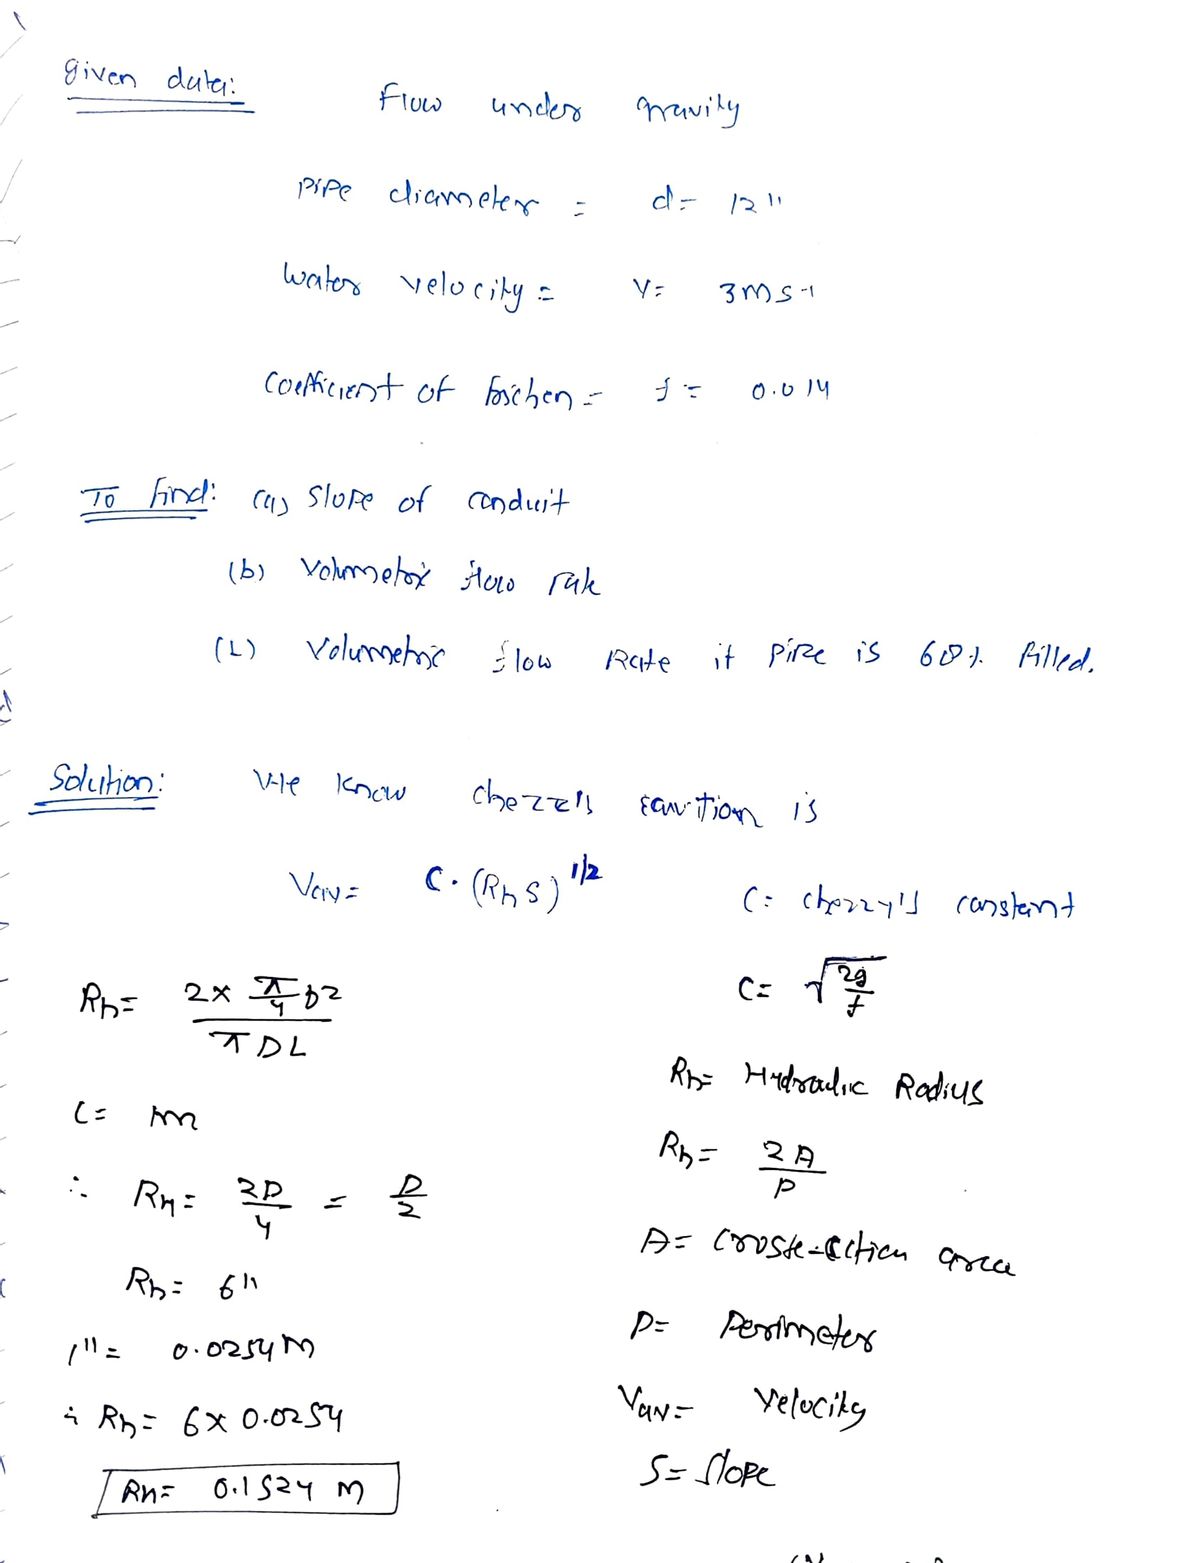 given data:
Flow under gravity
Pipe diameter = d= 12"
Water velocity = V= 3ms-1
Coefficient of friction = f = 0.014
To find: (a) Slope of conduit
(b) Volumetric flow rate
(c) Volumetric flow Rate if pipe is 60% filled.
Solution: We know chezzy's equation is
Vav= C. (Rh S) 1/2
C= chezzy's constant
Rh= 2x π/4 D2 / π D L
C= √2g/f
Rh= Hydraulic Radius
L= m
Rh= 2A/P
∴ Rh= 2D/4 = D/2
A= Cross-section area
Rh= 6"
P= Perimeter
1"= 0.0254m
Vav= Velocity
∴ Rh= 6x 0.0254
S= Slope
Rh= 0.1524 m